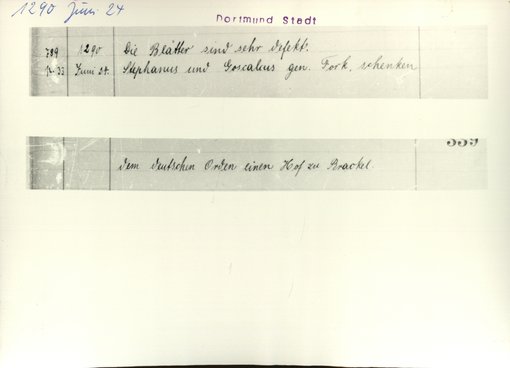 1290 Juni 24
Dortmund Stadt
789 1290 Die Blätter sind sehr defekt.
Juni 24. Stephanus und Goscalcus gen. Fork, schenken
339
dem deutschen Orden einen Hof zu Brackel.